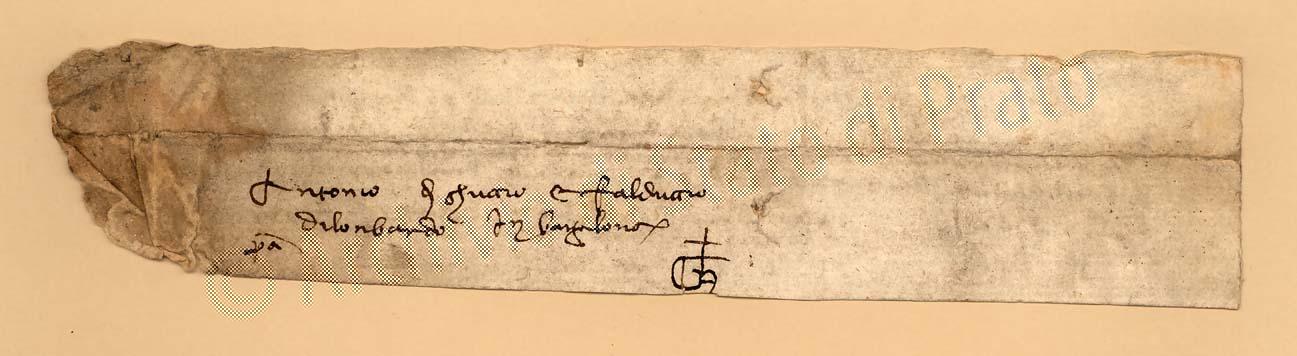 Antonio di ghuccio e falduccio
dilonbardo in barzalona
pa
© Archivio di Stato di Prato